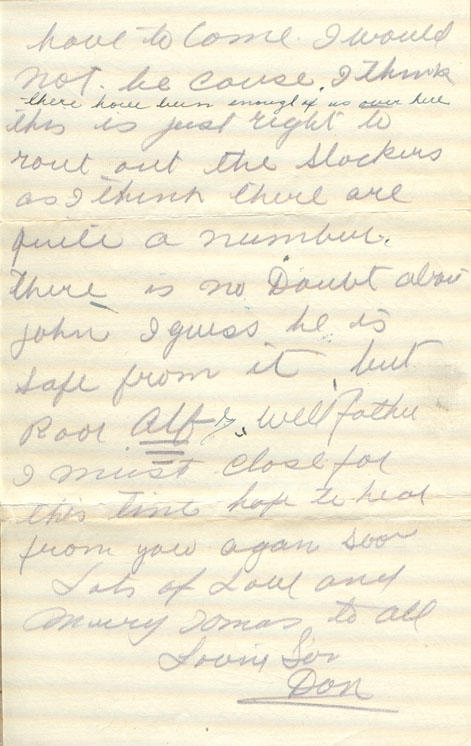 have to Come. I would
not. be cause. I think
there have been enough of us over here
this is just right to
rout out the Slackers
as I think there are
quite a number.
there is no Doubt about
John I guess he is
safe from it, but
Poor Alf. Well Father
I must close for
this time hope to hear
from you again soon
Lots of Love and
Merry Xmas to all
Loving Son
Don